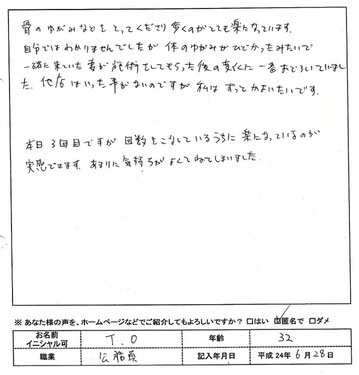 骨のゆがみなどをとってくださり歩くのがとても楽になっています。
自分ではわかりませんでしたが体のゆがみがひどかったみたいで
一緒に来ていた妻が施術をしてもらった後の変化に一番おどろいていまし
た。他店はいった事がないのですが私はずっとかよいたいです。
本日3回目ですが回数をこなしているうちに楽になっているのが
実感できます。あまりに気持ちがよくてねてしまいました。
※あなた様の声を、ホームページなどでご紹介してもよろしいですか？ □はい ☑匿名で □ダメ
お名前 イニシャル可 T.O 年齢 32
職業 公務員 記入年月日 平成24年6月28日